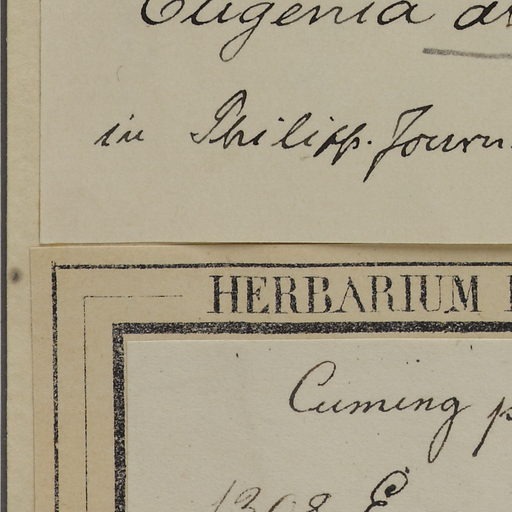 Eugenia
in Philipp. Journ.
HERBARIUM
Cuming
1308 E